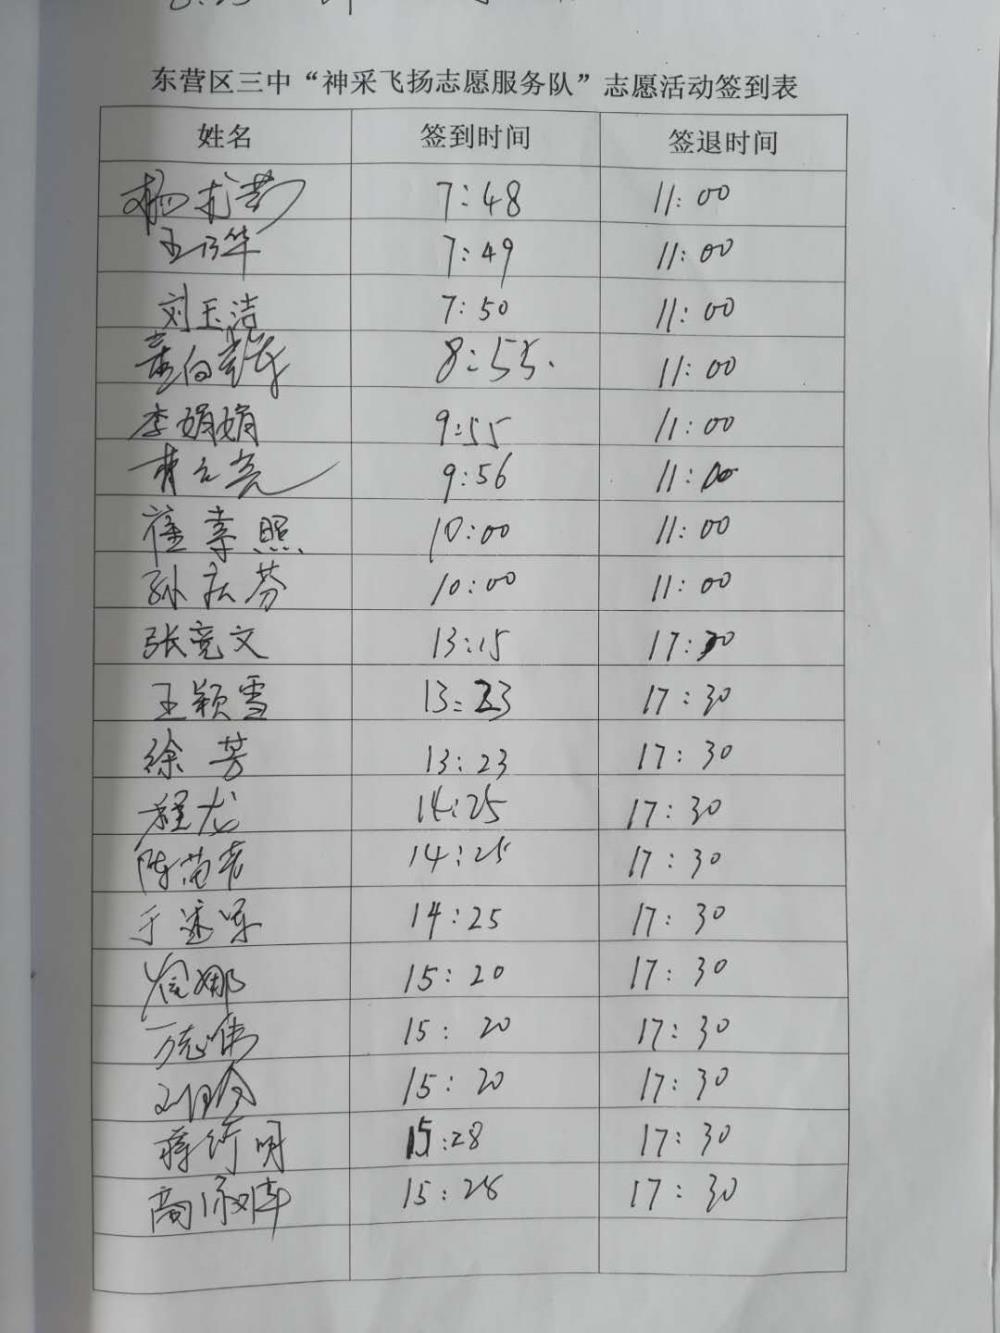 东营区三中“神采飞扬志愿服务队”志愿活动签到表
姓名 签到时间 签退时间
7:48 11:00
王乃华 7:49 11:00
刘玉洁 7:50 11:00
8:55 11:00
李娟娟 9:55 11:00
9:56 11:00
崔孝照 10:00 11:00
孙庆芬 10:00 11:00
张竞文 13:15 17:30
王颖雪 13:23 17:30
徐芳 13:23 17:30
程龙 14:25 17:30
陈苗苗 14:25 17:30
于 14:25 17:30
娜 15:20 17:30
万志伟 15:20 17:30
15:20 17:30
蒋竹明 15:28 17:30
商 15:28 17:30